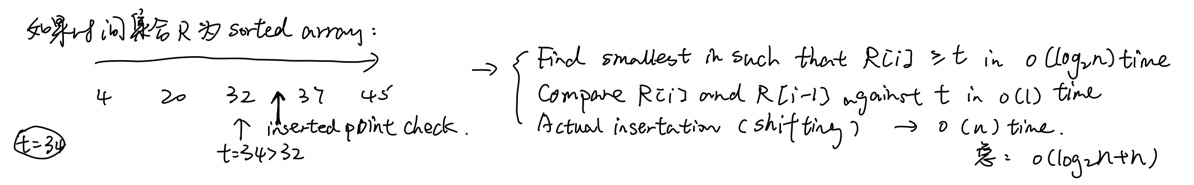 如果时间集合R为 sorted array:
4 20 32 37 45
inserted point check.
t=34>32
t=34
→ Find smallest in such that R[i] ≥ t in O(log₂n) time
Compare R[i] and R[i-1] against t in O(1) time
Actual insertation (shifting) → O(n) time.
总: O(log₂n+n)